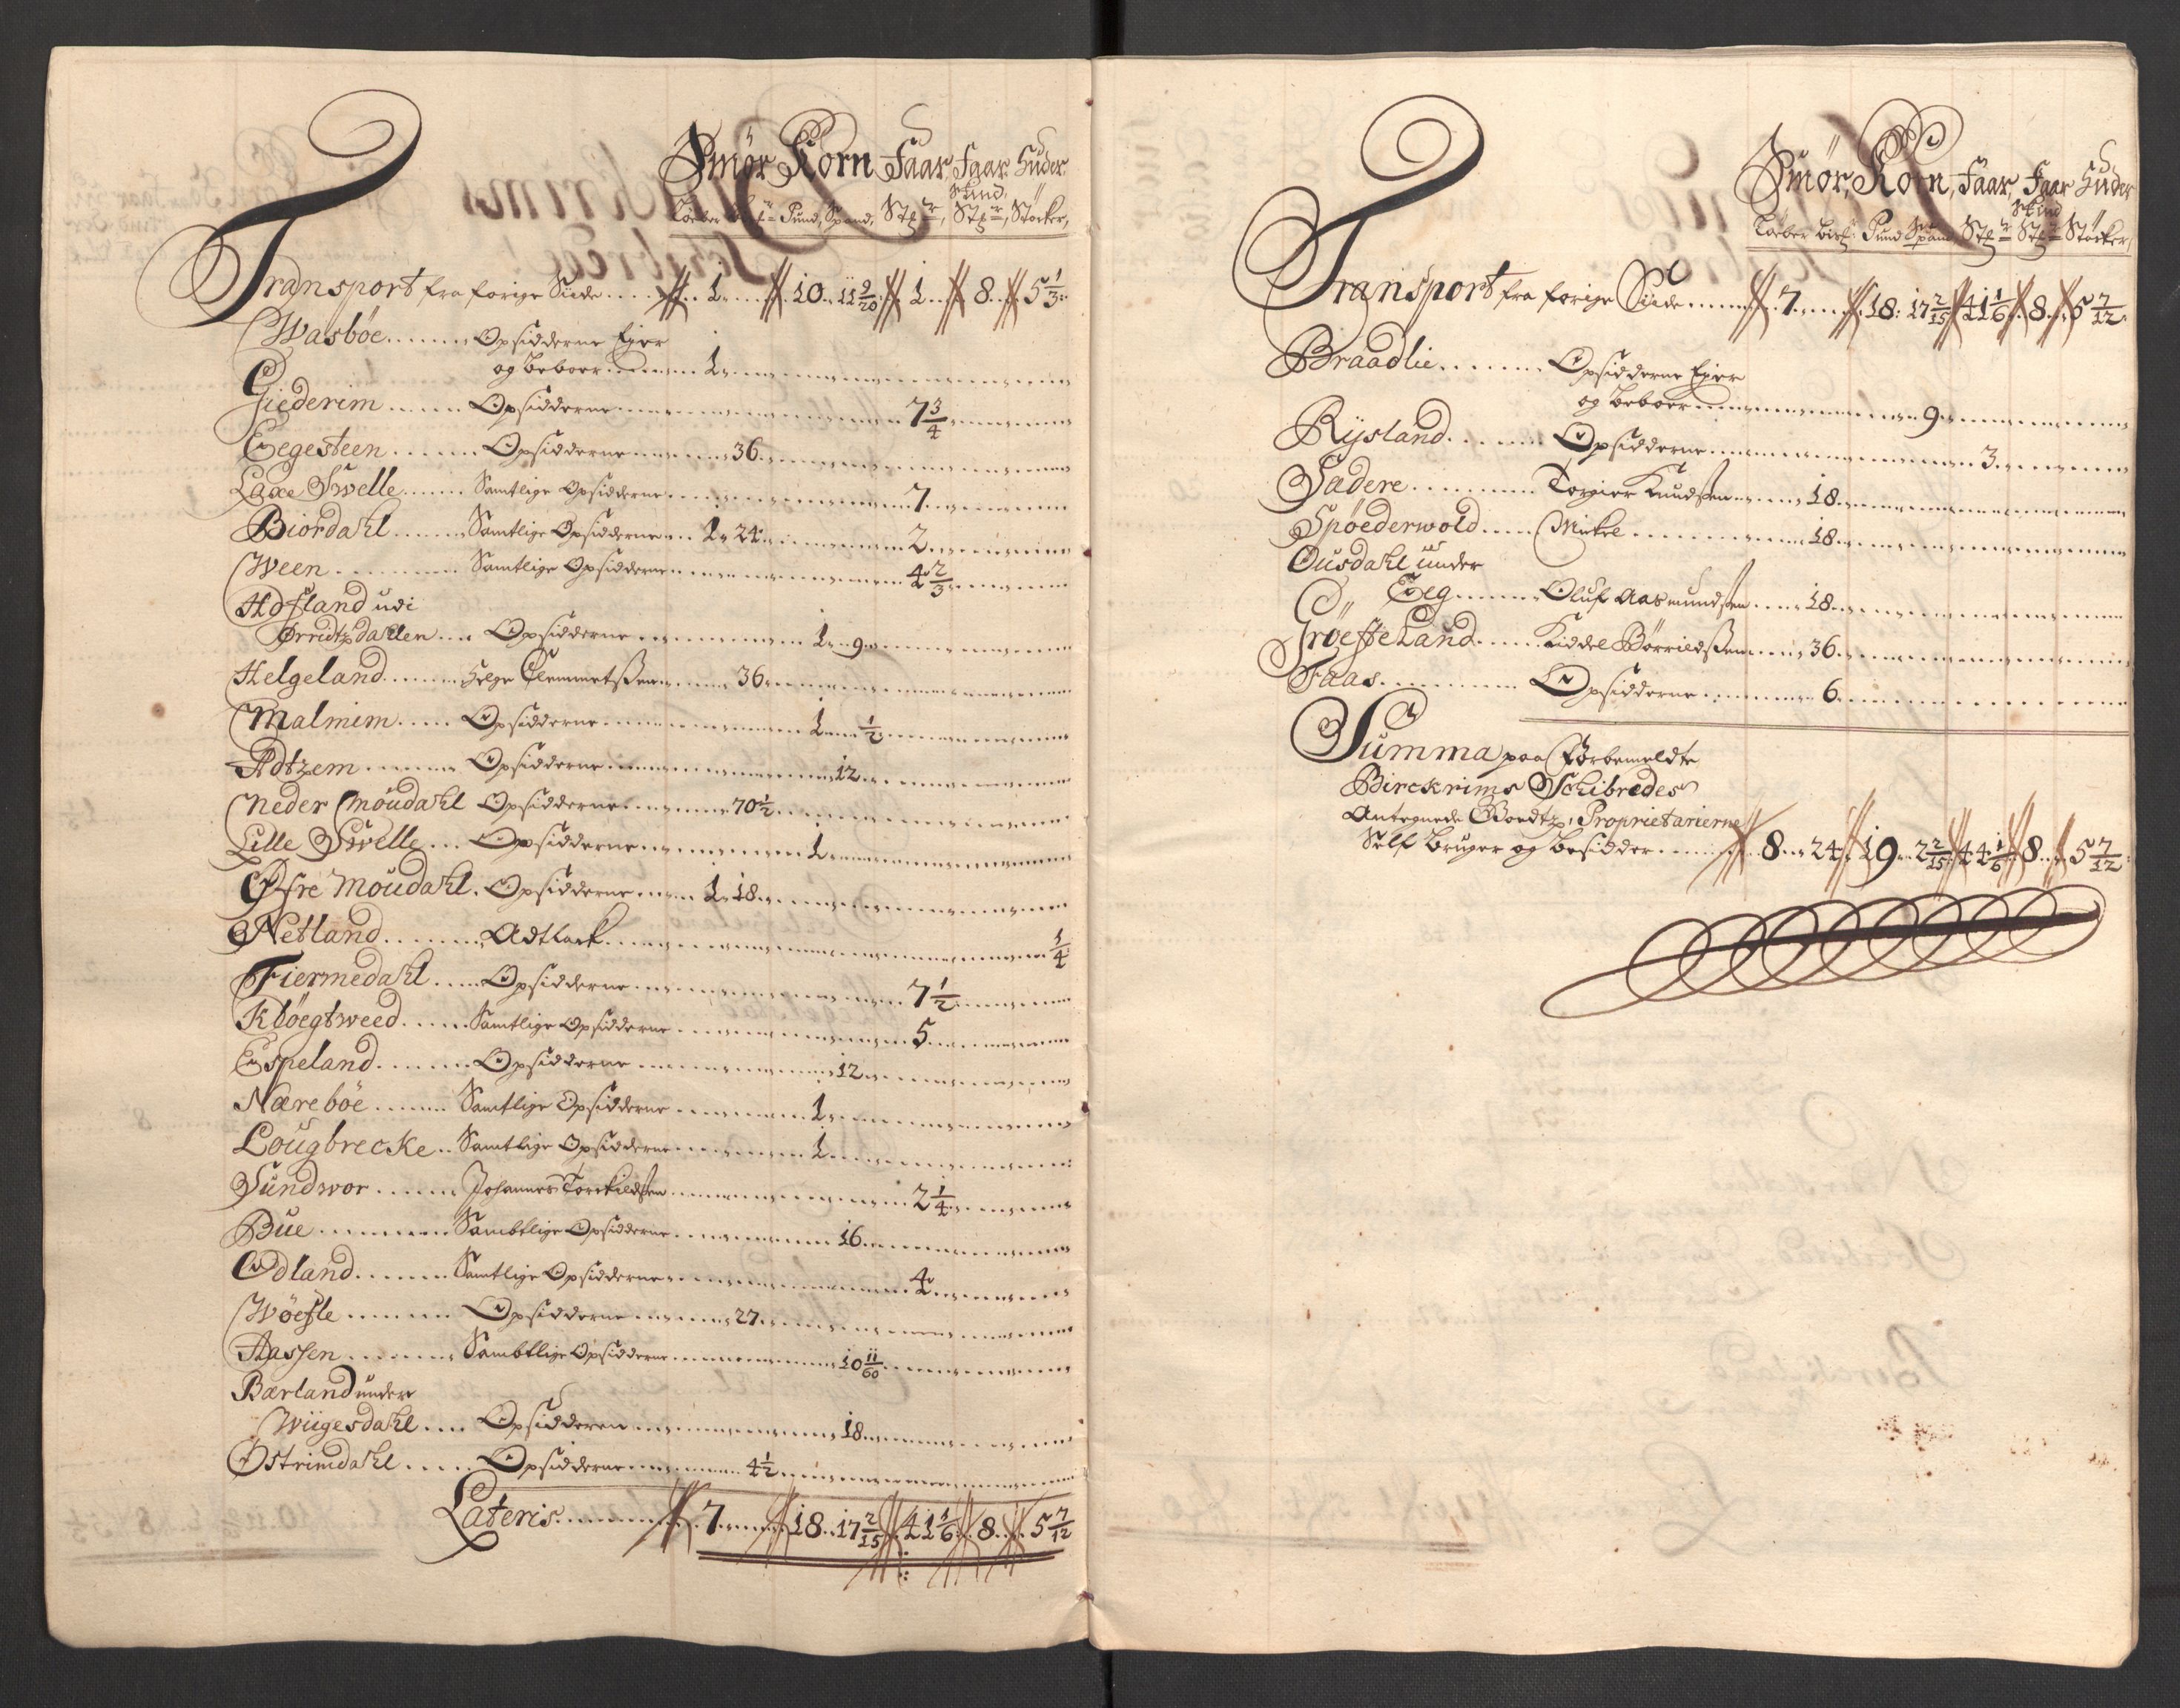 Smör, Korn, Faar, Faar Huder
Skind,
Löeber Bisf: Pund, Spand, Stk:r, Stk:r, Stöcker,
Transport fra forige Siide . . . . . 1 . . . . 10 . . 11 9/20 . . 1 . . 8 . . 5 1/3 :
Wasböe . . . . . . . Opsidderne Ejer
og beboer . . . . . . 1 . . . .
Giederim . . . . . . Opsidderne . . . . . . 7 3/4 . . . .
Eegesteen . . . . . . Opsidderne . . . . . . 36 . . . .
Laxe Swelle . . . . . Samtlige Opsidderne . . . . . . 7 . . . .
Biordahl . . . . . . Samtlige Opsidderne . . . 1 . 24 . . . . 2 . . . .
Ween . . . . . . Samtlige Opsidderne . . . . . . 4 2/3 . . . .
Hofland udi
Örridtzdallen . . . Opsidderne . . . . . . 1 . . 9 . . . .
Helgeland . . . . . . Helge Clemmetßen . . . . . 36 . . . .
Malmim . . . . . Opsidderne . . . . . . 1 . . . 1/2 . . . .
Adtzem . . . . . . Opsidderne . . . . . . 12 . . . .
Neder Möudahl Opsidderne . . . . . . 70 1/2 . . . .
Lille Swelle . . . Opsidderne . . . . . . 1 . . . .
Öfre Möudahl . Opsidderne . . . 1 . 18 . . . .
Netland . . . . . . Adtlack . . . . . . 1/4
Fiermedahl . . . . Opsidderne . . . . . . 7 1/2 . . . .
Klöegtweed . . . . . Samtlige Opsidderne . . . . . . 5 . . . .
Espeland . . . . . . Opsidderne . . . . . . 12 . . . .
Næreböe . . . . . . Samtlige Opsidderne . . . . . . 1 . . . .
Lougbrecke . . Samtlige Opsidderne . . . . . . 1 . . . .
Sundwor . . . . . . Johannes Torckildßen . . . . . . 2 1/4 . . . .
Bue . . . . . . Sambtlige Opsidderne . . . . . . 16 . . . .
Odland . . . . . . Samtlige Opsidderne . . . . . . 4 . . . .
Wöefle . . . . . . Opsidderne . . . . . . 27 . . . .
Aassen . . . . . . Sambtlige Opsidderne . . . . . . 10 11/60 . . . .
Bærland under
Wiigesdahl . . . . Opsidderen . . . . . . 18 . . . .
Östrimdahl . . . . . Opsidderne . . . . . . 4 1/2 . . . .
Lateris . . . . . . 7 . . . . 18 . . 17 2/15 . . 41 1/6 . . 8 . . 5 7/12
Smör, Korn, Faar, Faar Huder
Skind
Löeber Bisf: Pund Spand, Stk:r Stk:r Stöcker,
Transport fra forige Siide . . . . . 7 . . . . 18 : 17 2/15 41 1/6 . 8 . . 5 7/12 :
Braadlie . . . . . . . Opsidderne Ejer
og beboer . . . . . . 9 . . . .
Rijsland . . . . . . Opsidderne . . . . . . 3 . . . .
Sadere . . . . . . . Torgier Knudßen . . . . . 18 . . . .
Spöederwold . . . . Mickel . . . . . . 18 . . . .
Ousdahl under
Eeg . . . . . . Oluf Aasmundßen . . . . 18 . . . .
Gröeffeland . . . . Kiddel Börrildßen . . . 36 . . . .
Faas . . . . . . . Opsidderne . . . . . . 6 . . . .
Summa paa Forbemeldte
Birckrims Schibredes
Antegnede Goedtz, Proprietarierne
Self bruger og besidder . . . . . 8 . . 24 . 19 . . 2 2/15 . 44 1/6 . 8 . . 5 7/12 :